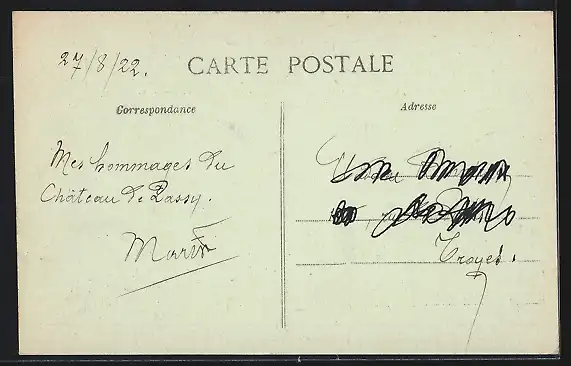 27/8/22.
CARTE POSTALE
Correspondance
Adresse
Mes hommages du
Château de Passy.
Troyes.